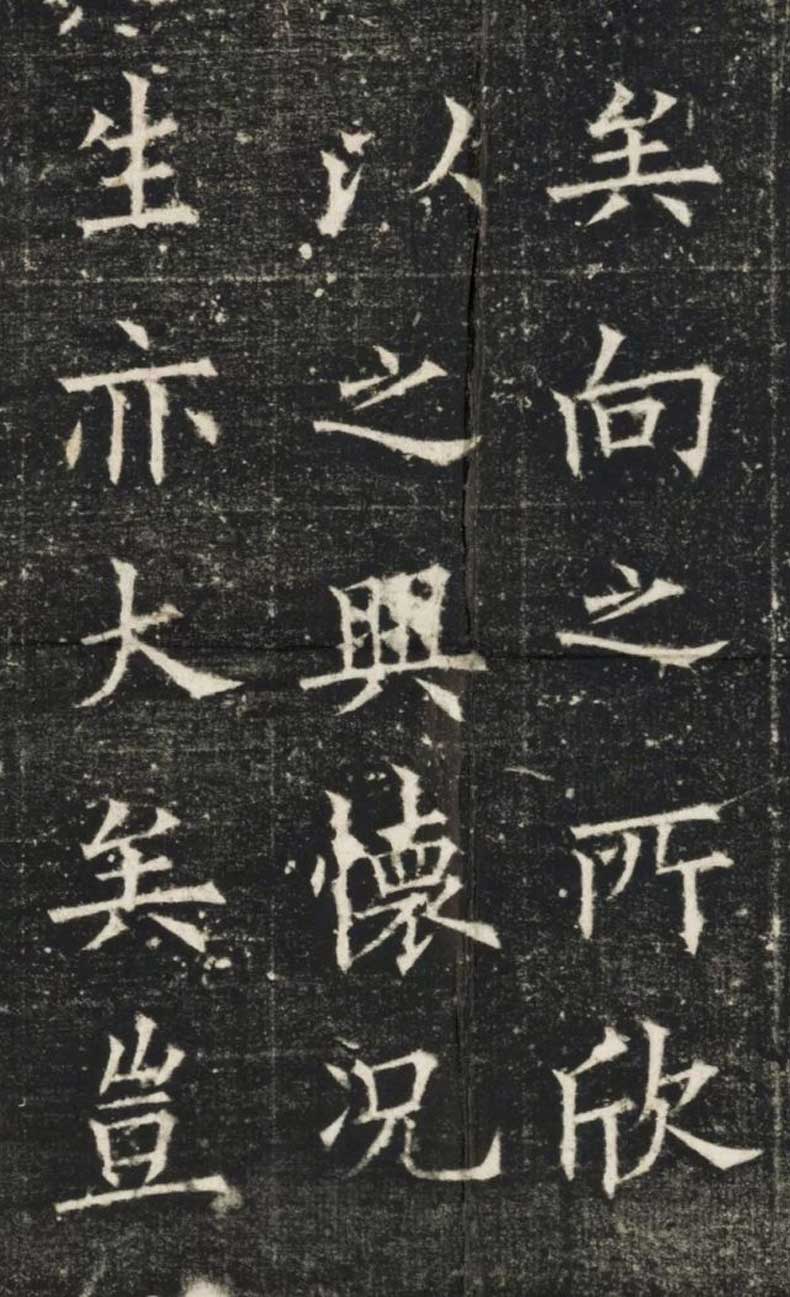 矣向之所欣
以之興懷况
生亦大矣豈